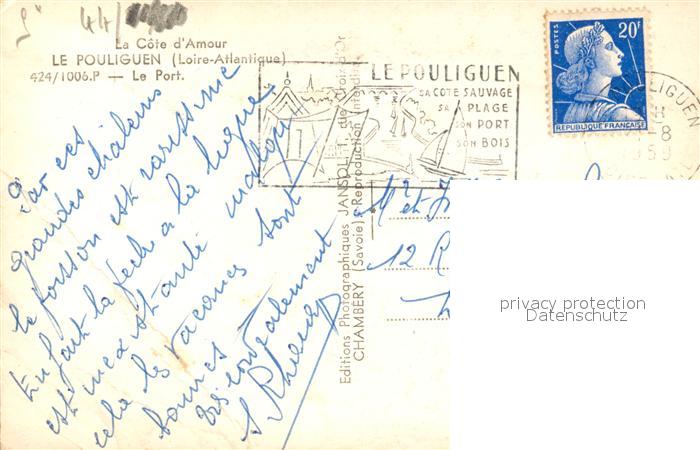 La Côte d'Amour
LE POULIGUEN (Loire-Atlantique)
424/1006.P — Le Port.
Par ces
grandes chaleurs
le poisson est rarissime
Enfant la pêche a la ligne
est inexistante malgré
cela les vacances sont
bonnes
Très cordialement
Editions Photographiques JANSOL, 1, rue Croix d'Or
CHAMBÉRY (Savoie) - Reproduction Interdite
LE POULIGUEN
SA COTE SAUVAGE
SA PLAGE
SON PORT
SON BOIS
POSTES
20F
REPUBLIQUE FRANÇAISE
LIGUEN
-8
59
M et
12 R
privacy protection
Datenschutz